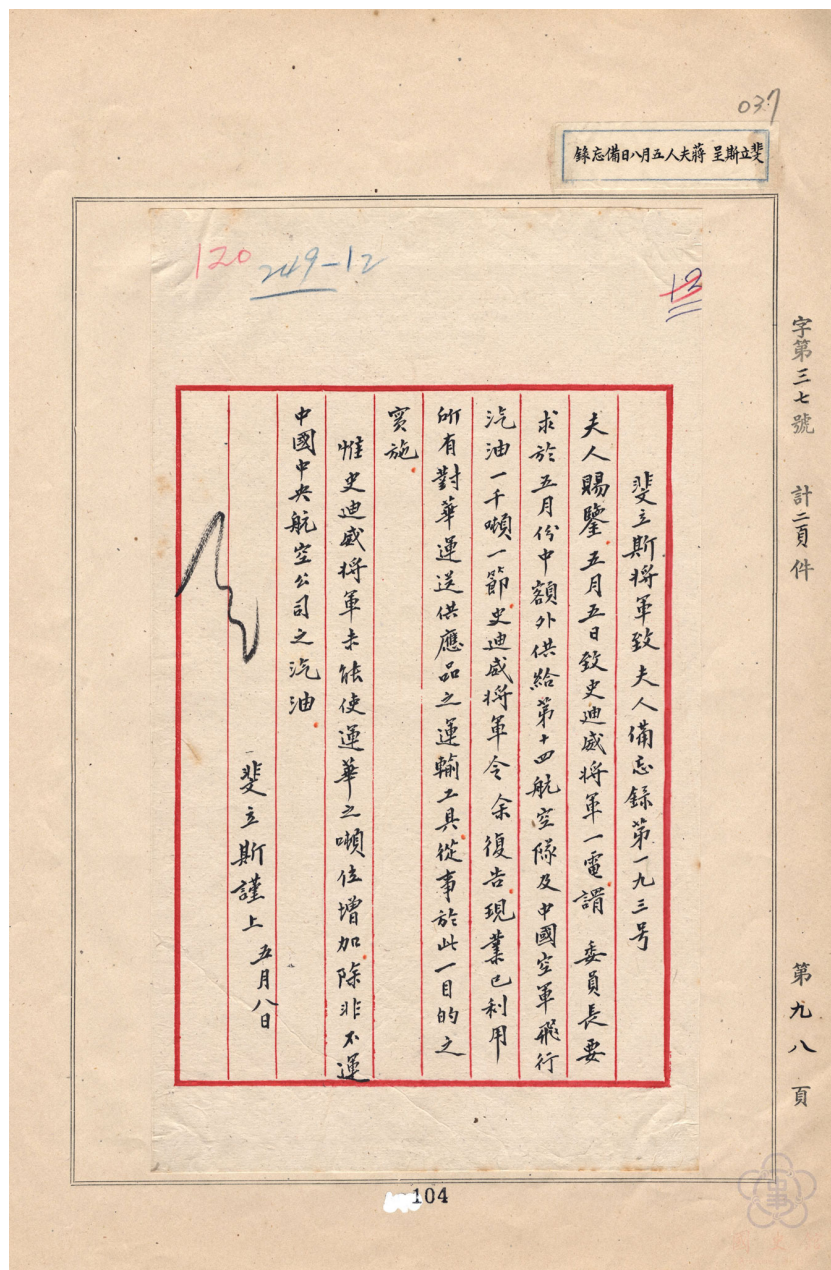 037
斐立斯呈 蔣夫人五月八日備忘錄
120
249-12
12
字第三七號 計二頁件 第九八頁
斐立斯將軍致 夫人備忘錄第一九三号
夫人賜鑒五月五日致史迪威將軍一電謂 委員長要
求於五月份中額外供給第十四航空隊及中國空軍飛行
汽油一千噸一節史迪威將軍令余復告現業已利用
所有對華運送供應品之運輸工具從事於此一目的之
實施
惟史迪威將軍未能使運華之噸位增加除非不運
中國中央航空公司之汽油
斐立斯謹上 五月八日
104